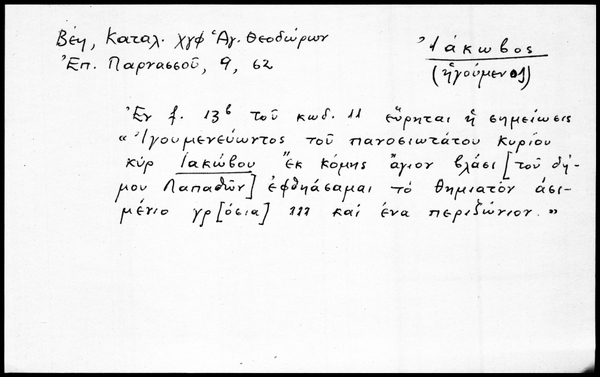 Βέη, Καταλ. χγφ Ἁγ. Θεοδώρων
Ἐπ. Παρνασσοῦ, 9, 62
Ἰάκωβος
(ἡγούμενος)
Ἐν f. 13β τοῦ κωδ. 11 εὕρηται ἡ σημείωσις
«Ἰγουμενεύωντος τοῦ πανοσιωτάτου κυρίου
κύρ Ιακώβου ἐκ κόμης ἄγιον βλάσι [τοῦ δή-
μου Λαπαθῶν] ἐφθηάσαμαι τό θημιατόν ἀσι-
μένιο γρ[όσια] 111 καί ένα περιζώνιον.»